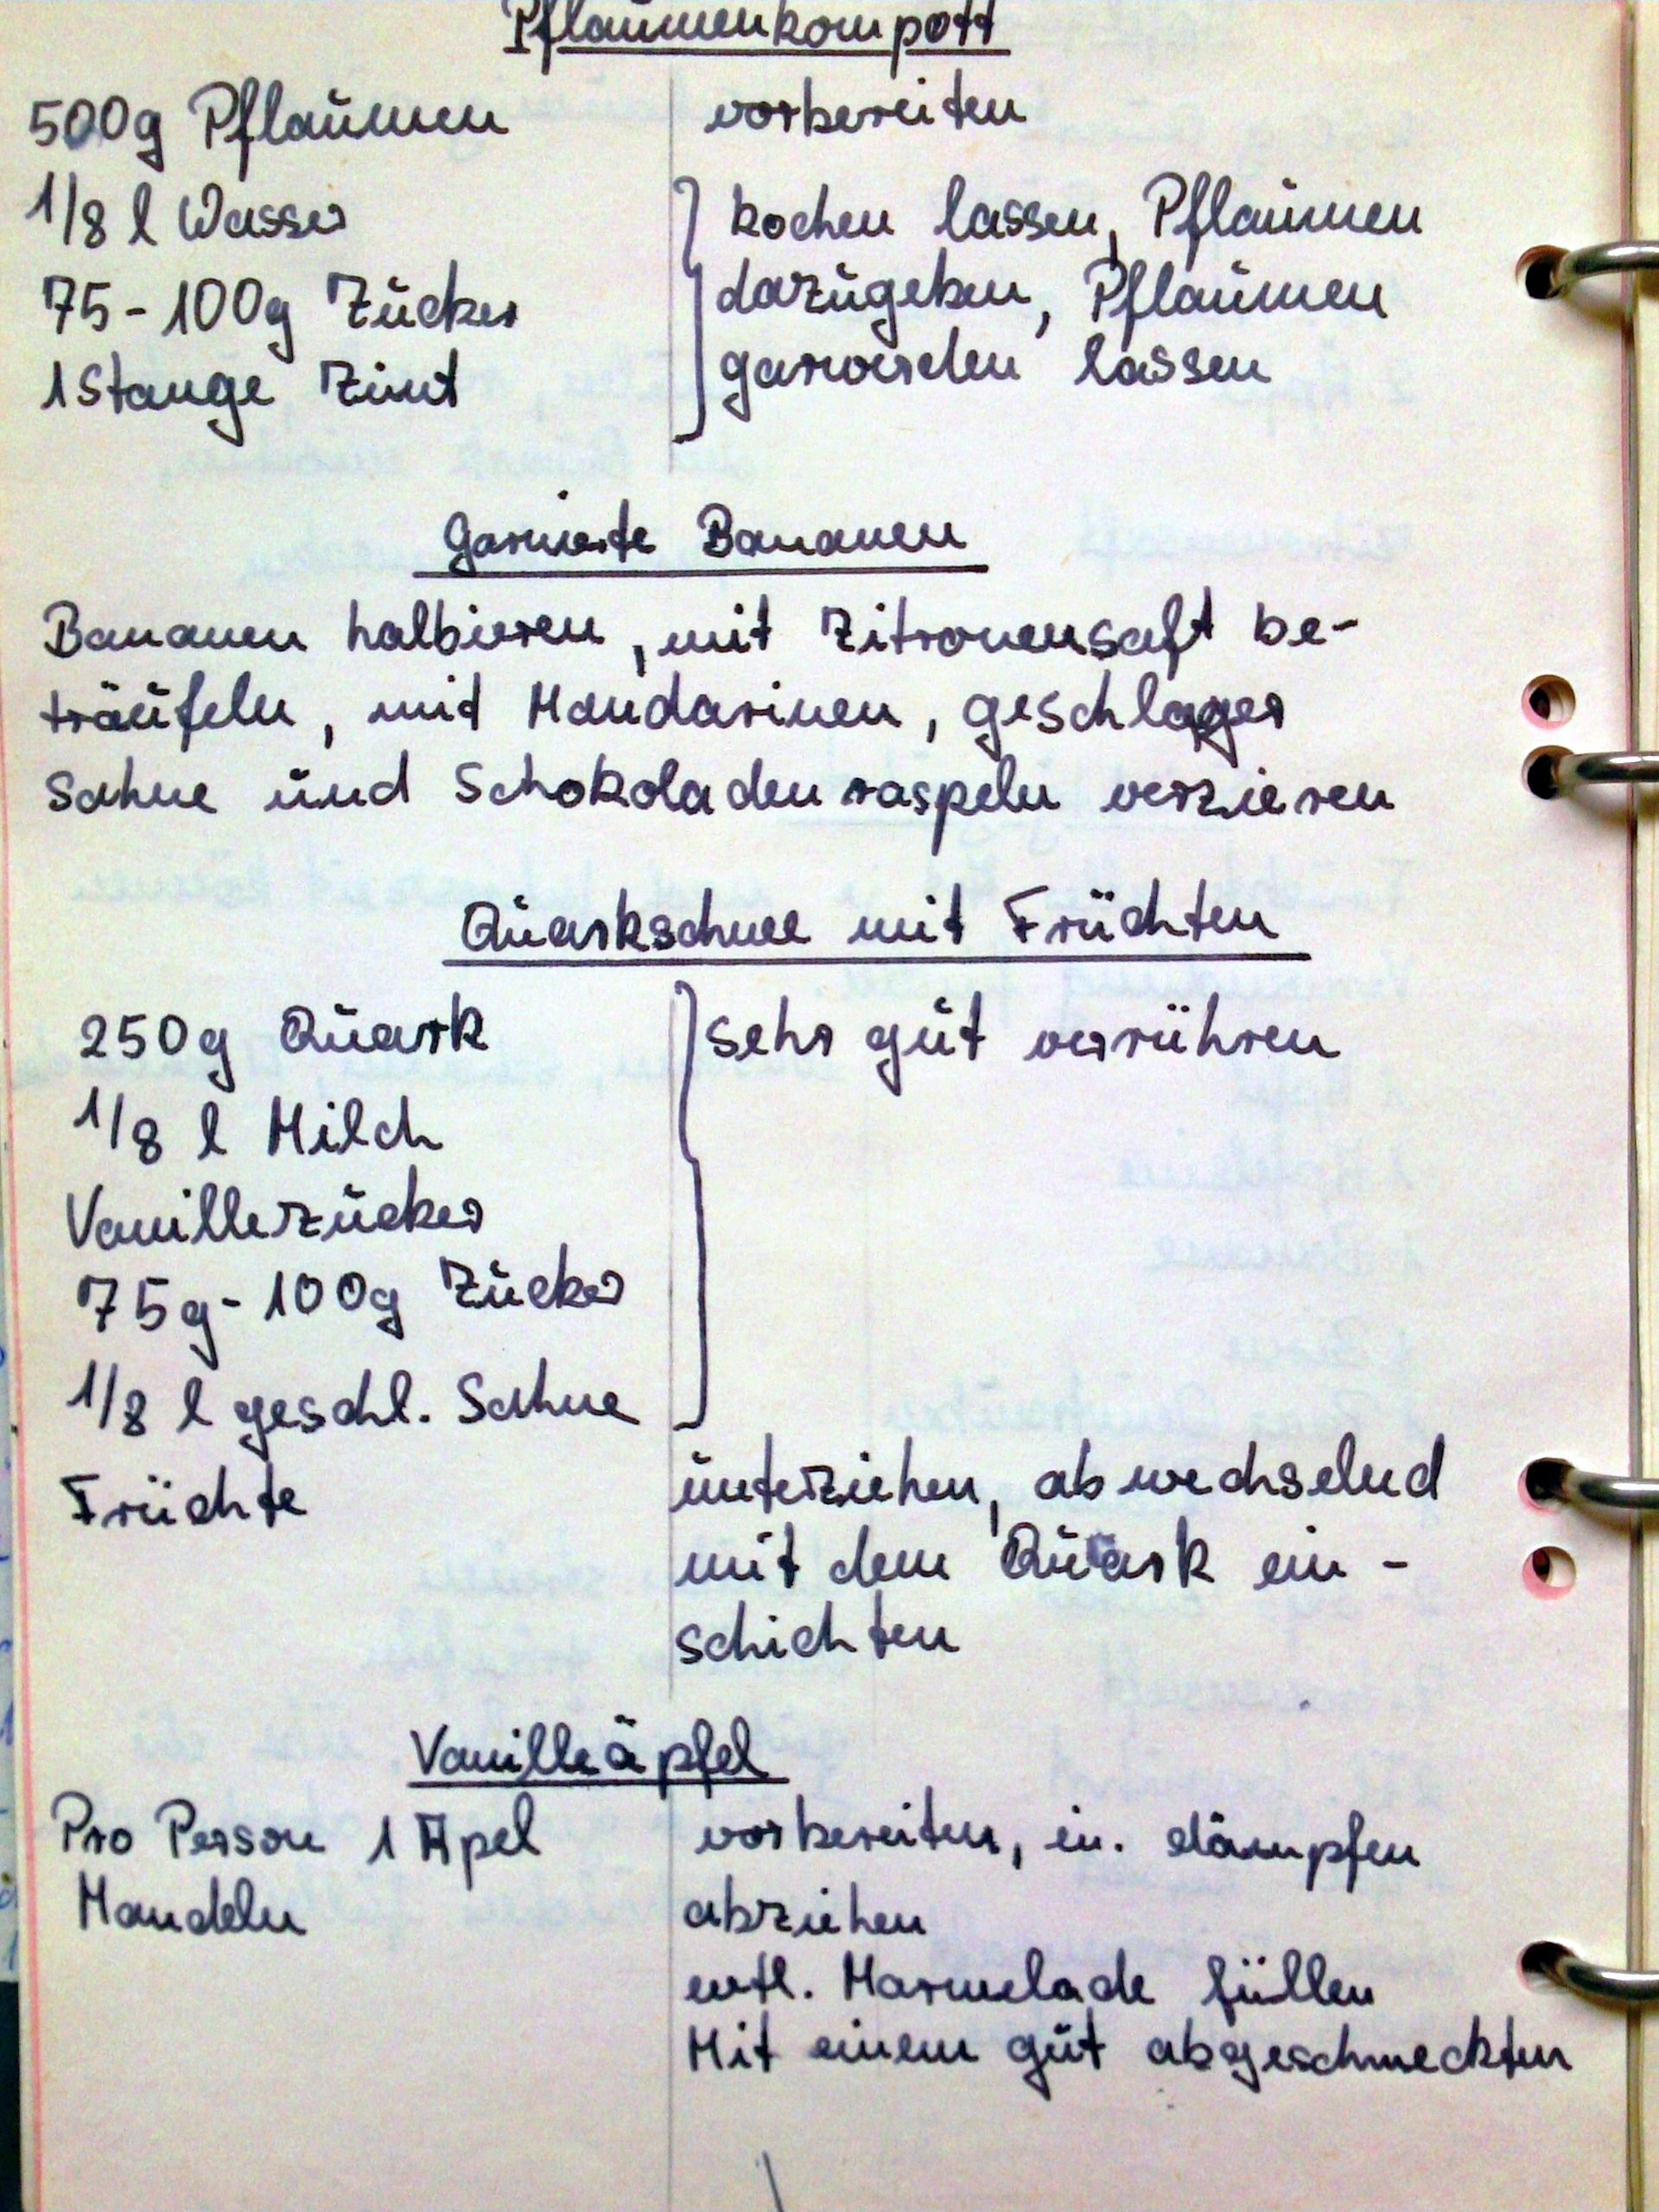 Pflaumenkompott
500g Pflaumen vorbereiten
1/8 l Wasser kochen lassen, Pflaumen
75-100g Zucker dazugeben, Pflaumen
1 Stange Zimt garwerden lassen
Garnierte Bananen
Bananen halbieren, mit Zitronensaft be-
träufeln, mit Mandarinen, geschlager
Sahne und Schokoladenraspeln verzieren
Quarkschnee mit Früchten
250g Quark sehr gut verrühren
1/8 l Milch
Vanillezucker
75g-100g Zucker
1/8 l geschl. Sahne
Früchte unterziehen, abwechselnd
mit dem Quark ein-
schichten
Vanilleäpfel
Pro Person 1 Apel vorbereiten, dämpfen
Mandeln abziehen
evtl. Marmelade füllen
Mit einem gut abgeschmeckten